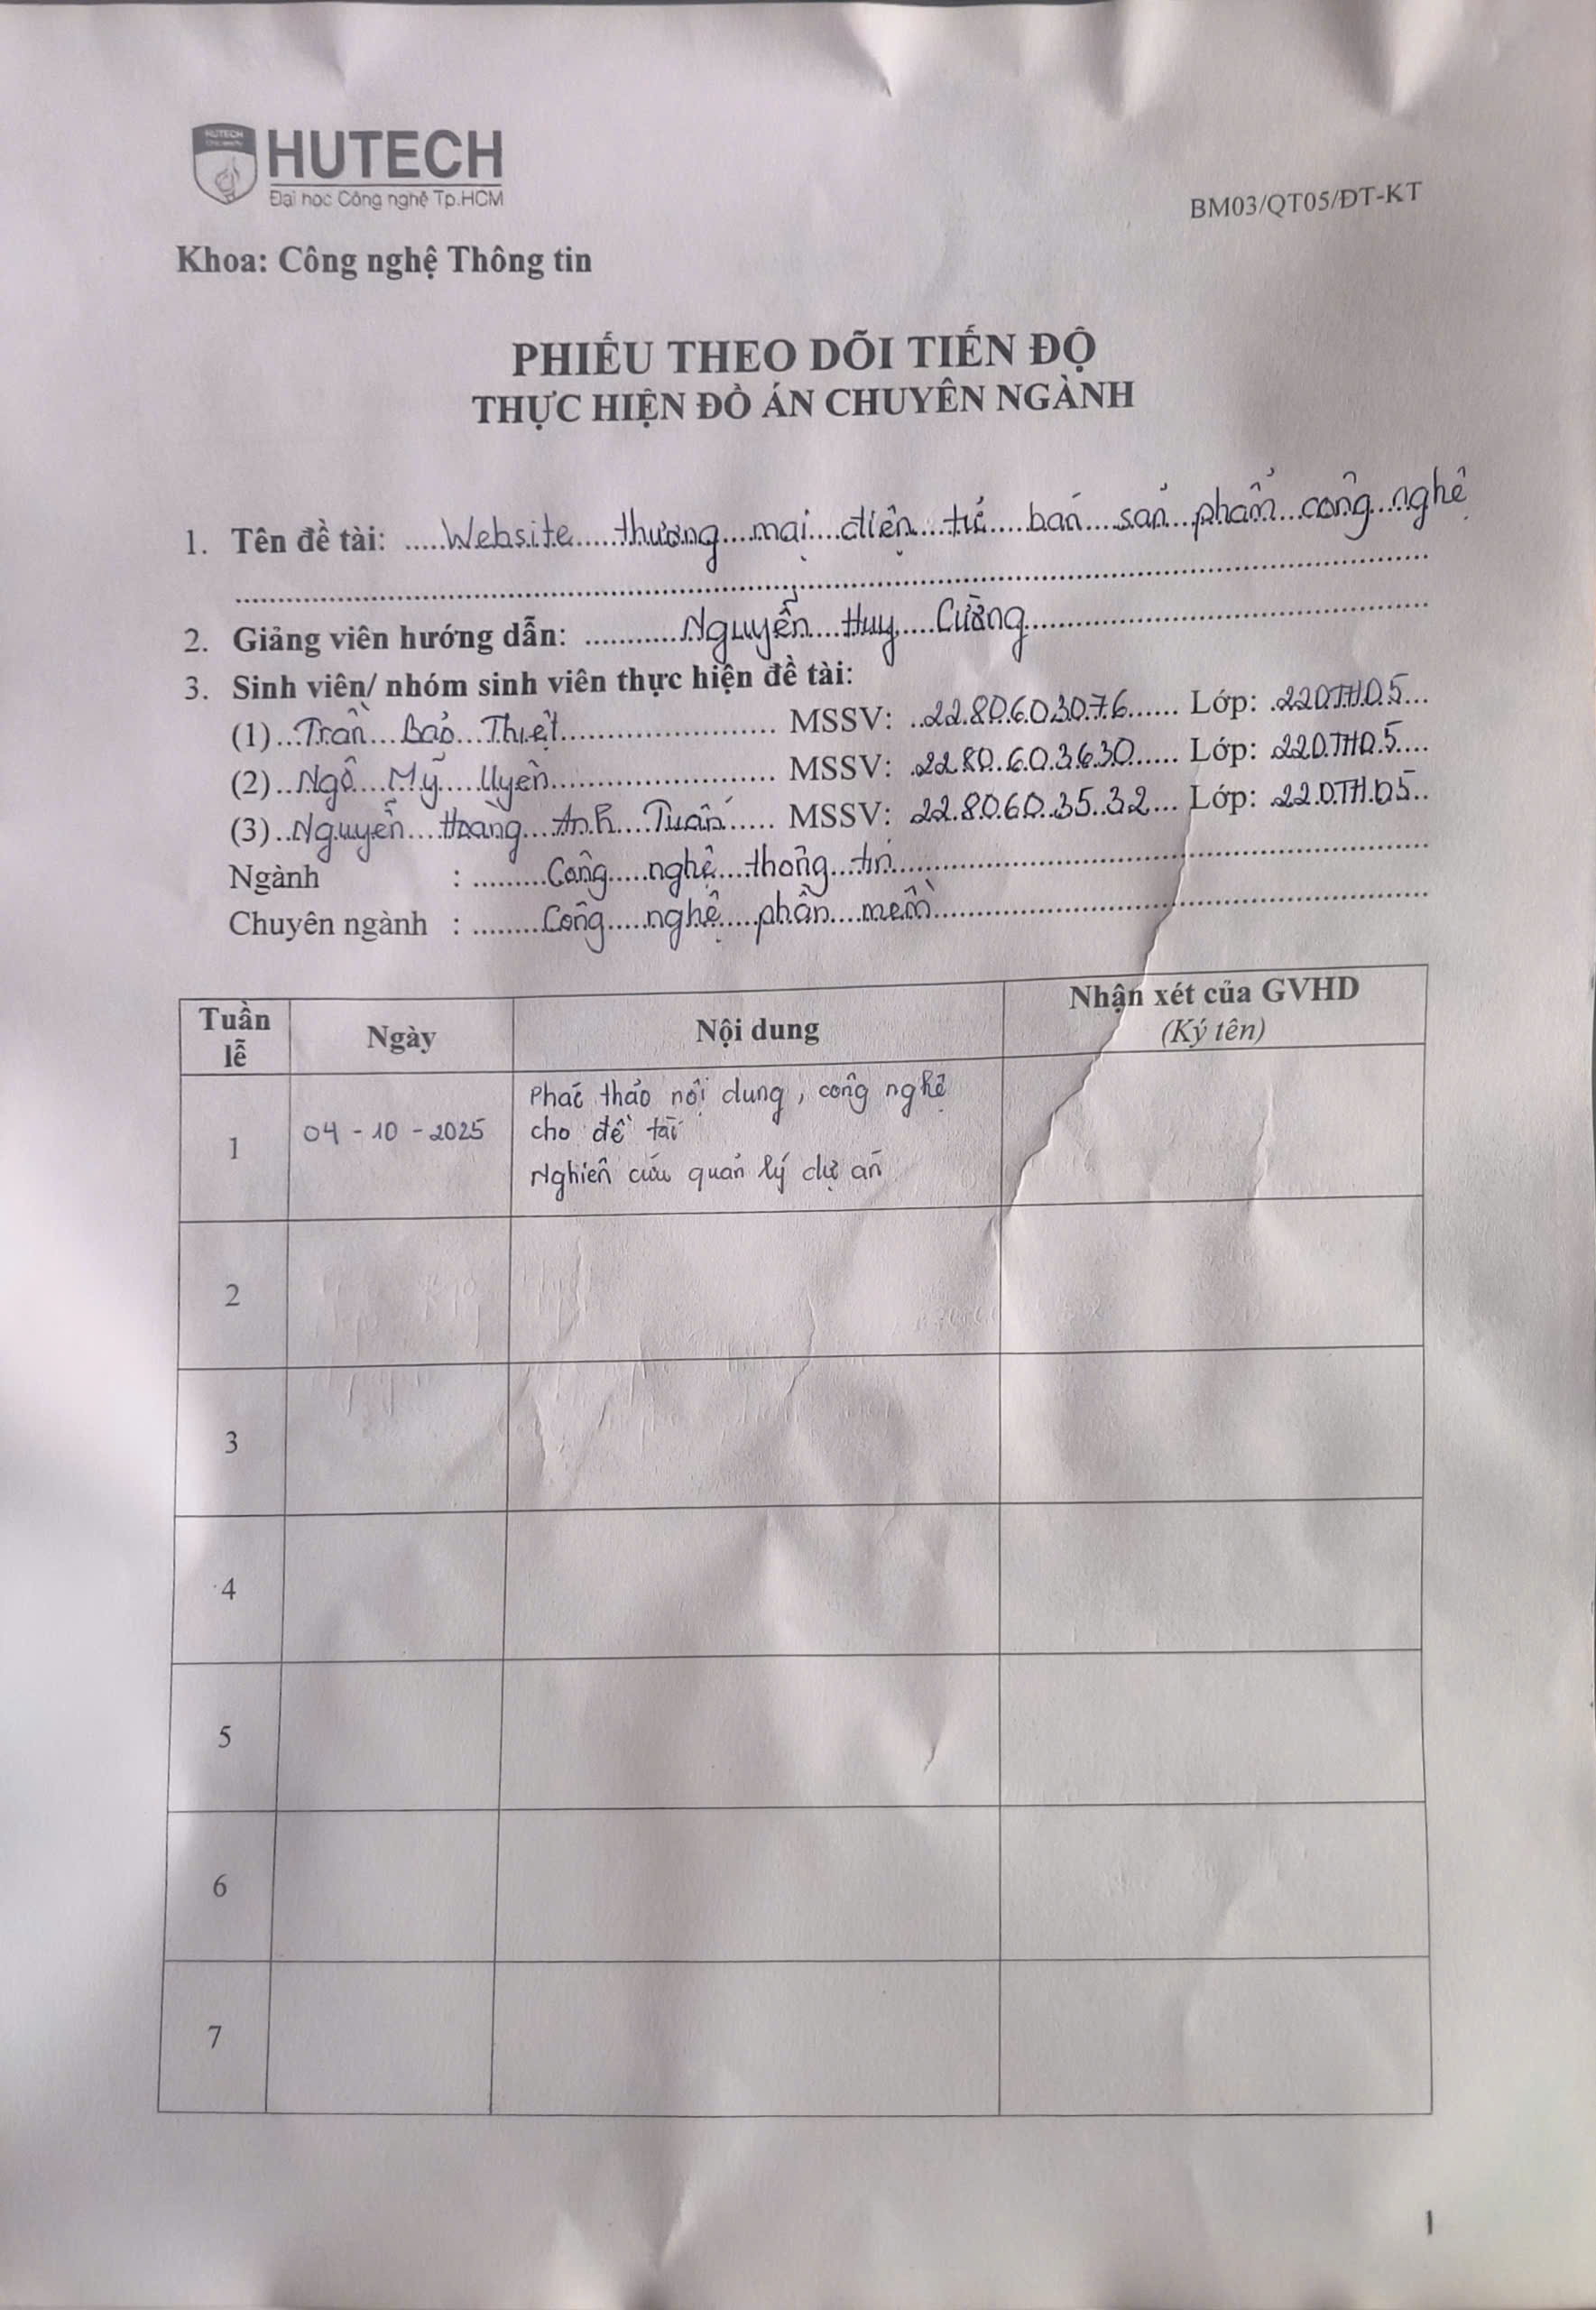 HUTECH
Đại học Công nghệ Tp.HCM
BM03/QT05/ĐT-KT
Khoa: Công nghệ Thông tin
PHIẾU THEO DÕI TIẾN ĐỘ
THỰC HIỆN ĐỒ ÁN CHUYÊN NGÀNH
1. Tên đề tài: Website thương mại điện tử bán sản phẩm công nghệ
2. Giảng viên hướng dẫn: Nguyễn Huy Cường
3. Sinh viên/ nhóm sinh viên thực hiện đề tài:
(1) Trần Bảo Thiệt MSSV: 2280603076 Lớp: 22DTHD5
(2) Ngô Mỹ Uyên MSSV: 2280603630 Lớp: 22DTHD5
(3) Nguyễn Hoàng Anh Tuấn MSSV: 2280603532 Lớp: 22DTHD5
Ngành : Công nghệ thông tin
Chuyên ngành : Công nghệ phần mềm
Tuần lễ Ngày Nội dung Nhận xét của GVHD
(Ký tên)
Phác thảo nội dung, công nghệ
1 04-10-2025 cho đề tài
Nghiên cứu quản lý dự án
2
3
4
5
6
7
1